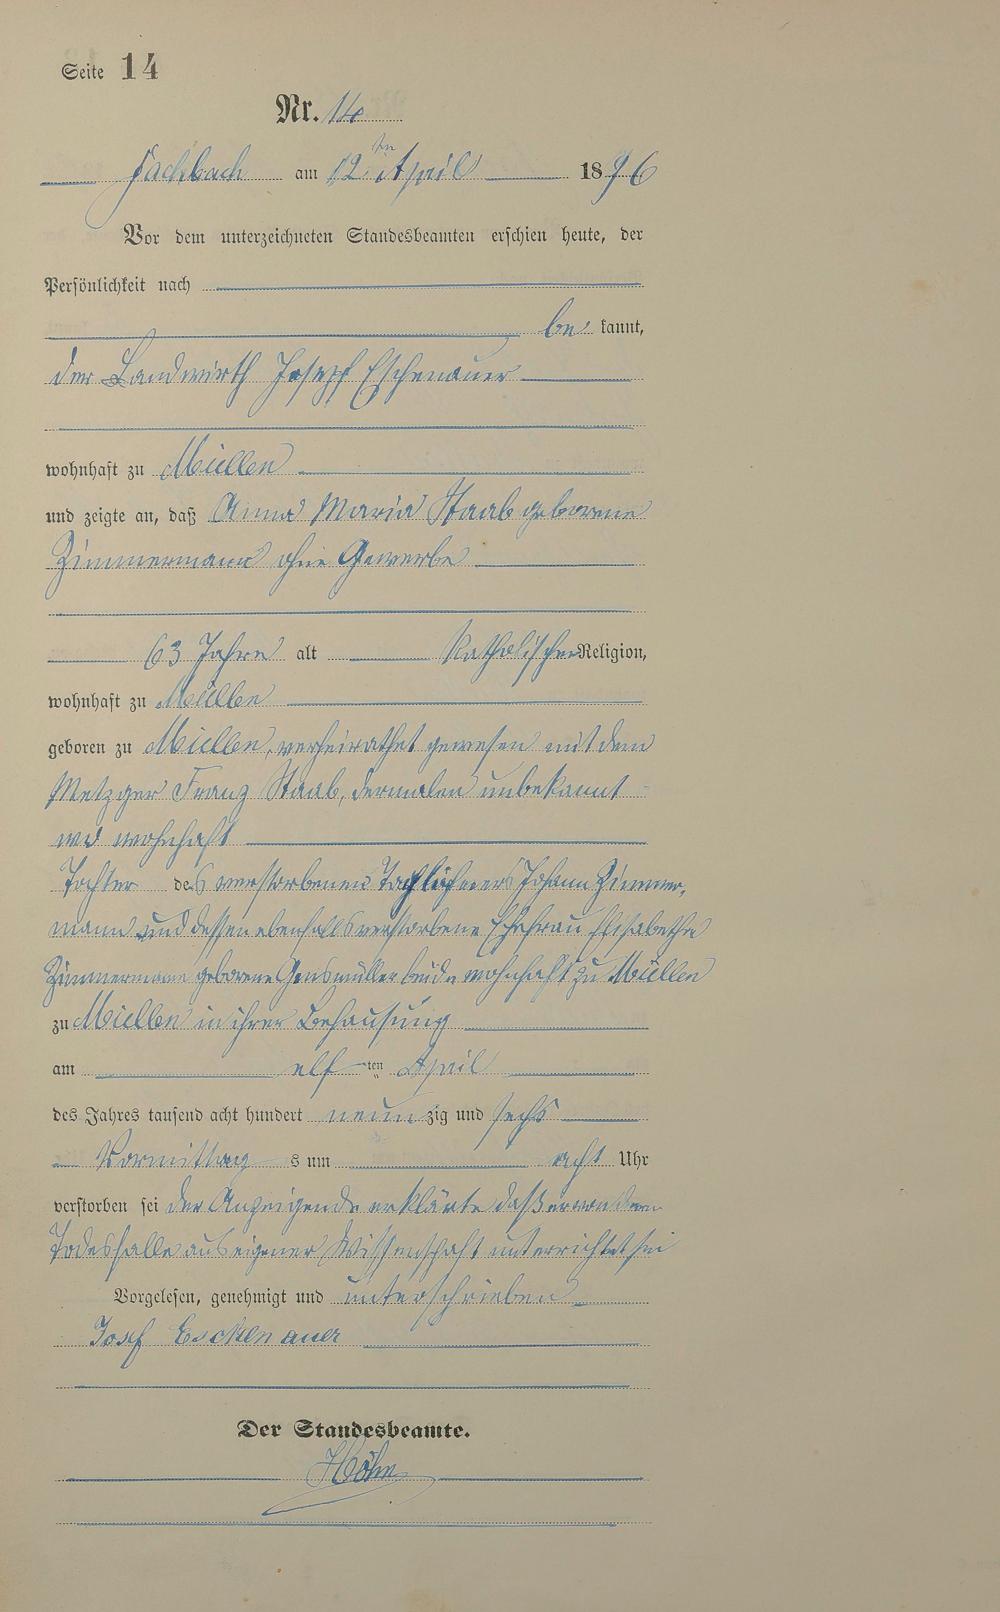 Seite 14
Nr. 14
Fachbach am 12ten April 1896
Vor dem unterzeichneten Standesbeamten erschien heute, der
Persönlichkeit nach
be kannt,
der Landwirth Joseph Eschenauer
wohnhaft zu Miellen
und zeigte an, daß Anna Maria Staab geborene
Zimmermann ohne Gewerbe
63 Jahre alt katholischer Religion,
wohnhaft zu Miellen
geboren zu Miellen, verheirathet gewesen mit dem
Metzger Franz Staab, dermalen unbekannt
wo wohnhaft
Tochter des verstorbenen Taglöhners Johann Zimmer-
mann und dessen ebenfalls verstorbene Ehefrau Elisabetha
Zimmermann geborene Gensmüller beide wohnhaft zu Miellen
zu Miellen in ihrer Behausung
am elf ten April
des Jahres tausend acht hundert neun zig und sechs
Vormittag s um acht Uhr
verstorben sei der Anzeigende erklärte daß er von dem
Todesfalle aus eigener Wissenschaft unterrichtet sei
Vorgelesen, genehmigt und unterschrieben
Josef Eschenauer
Der Standesbeamte.
Höhn